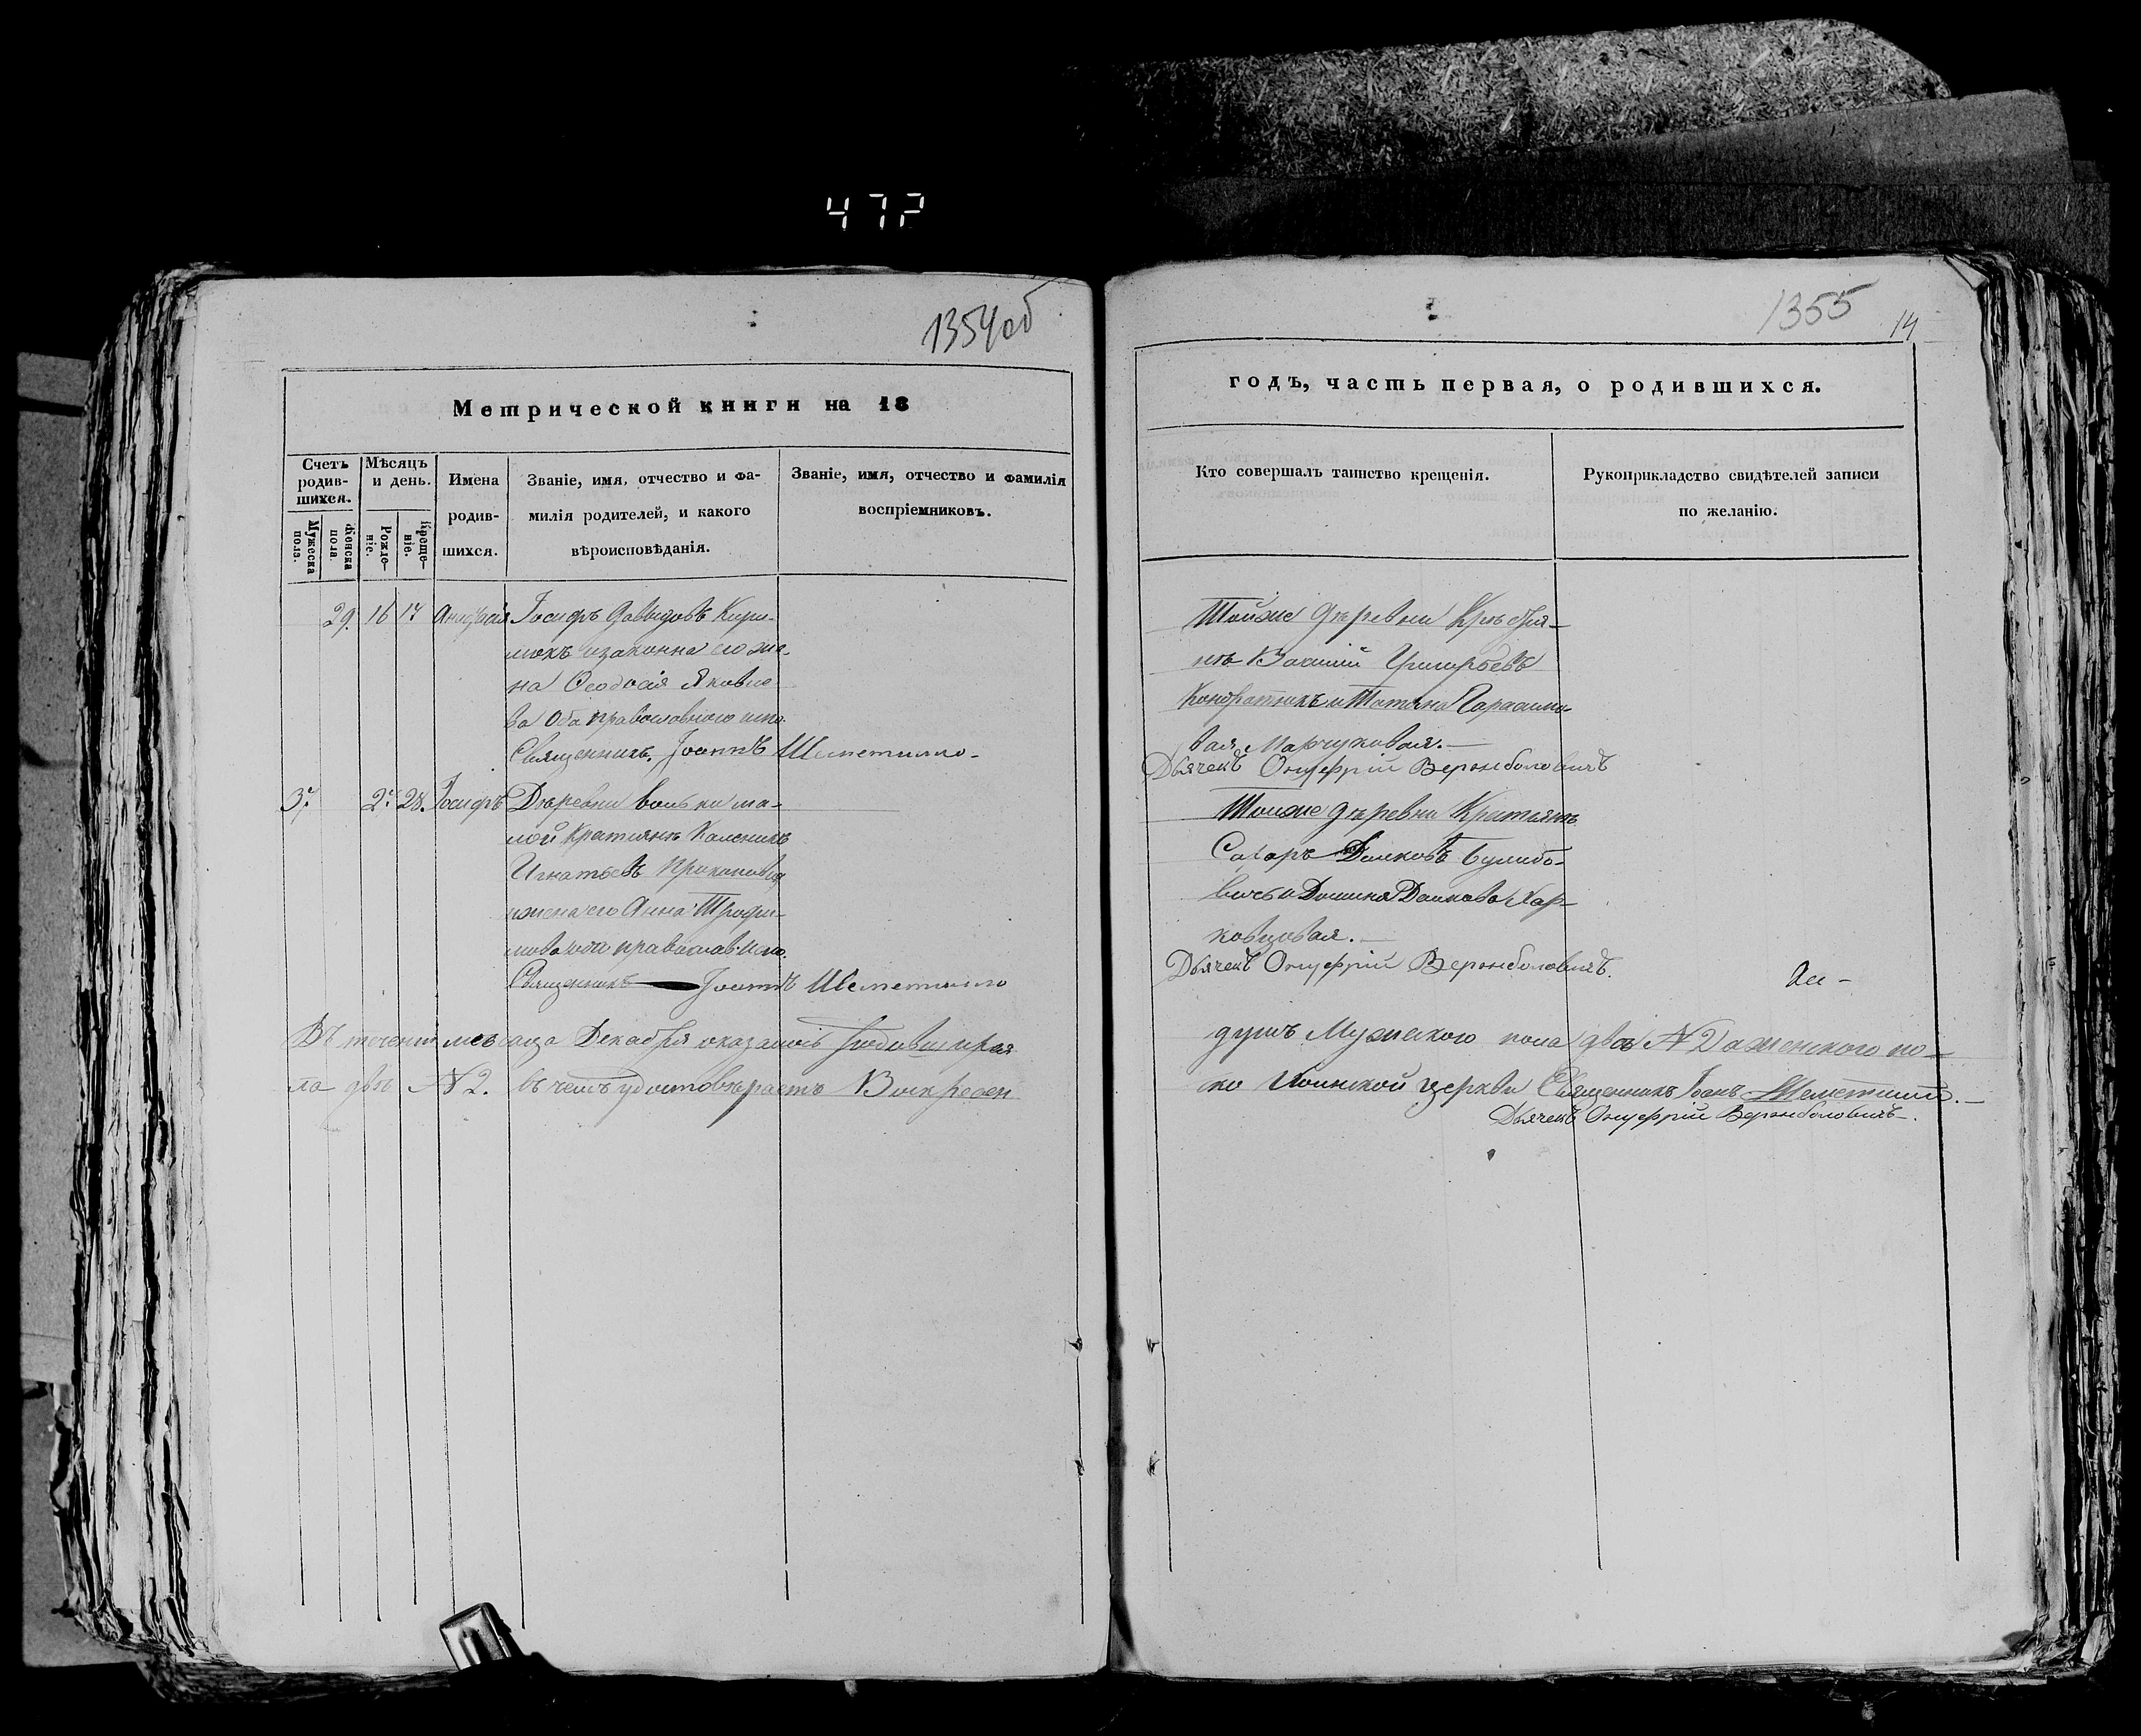 472
1354об
Метрической книги на 18
Счетъ родив-шихся.
Мужеска пола.
Женска пола
Мѣсяцъ и день.
Рожде-ніе.
Креще-ніе.
Имена родив-шихся.
Званіе, имя, отчество и фа-
милія родителей, и какого
вѣроисповѣданія.
Званіе, имя, отчество и фамилія
воспріемниковъ.
29. 16 17 Іосифъ Давыдовъ Кири-
законна его же-
на Ѳеодосія Яковле-
ва Оба православного испо.
Священникъ Іоаннъ Шеметилло
3. 28. Іосифъ Деревни Вольки ма-
лой Каленикъ
Игнатьевъ
жена его Анна Трофи-
мова оба православ. испо.
Священникъ Іоаннъ Шеметилло
Въ теченіи месяца Декабря оказалось родившихся
ла двѣ N 2. въ чемъ удостовѣряетъ Воскресен
1355
14
годъ, часть первая, о родившихся.
Кто совершалъ таинство крещенія.
Рукоприкладство свидѣтелей записи
по желанію.
Тойже деревни
Григорьевъ
Кондратикъ и Татяна Гарасимо-
вая Марчуковая.
Дьячекъ Онуфрій Вержболовичъ
Тойже деревни
Данковъ
Домна Данкова Хар-
ковцовая.
Дьячекъ Онуфрій Вержболовичъ.
душъ Мужеского пола два N 2 а женского по-
ско церкви Священникъ Іоанъ Шеметилло.
Дьячекъ Онуфрій Вержболовичъ.